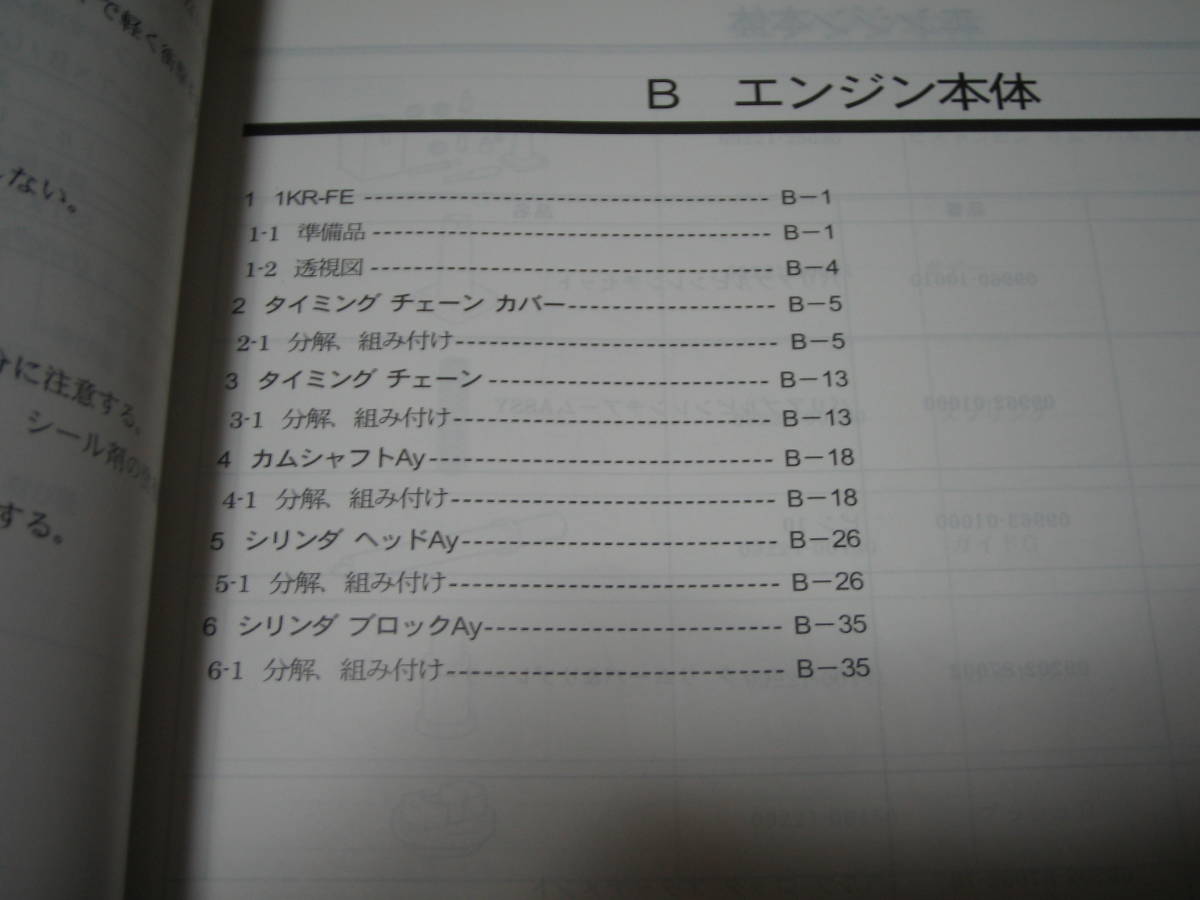 で軽く
ない。
に注意する。
シール剤の
する。
B エンジン本体
1 1KR-FE ---------------------------------------- B－1
1-1 準備品 ---------------------------------------- B－1
1-2 透視図 ---------------------------------------- B－4
2 タイミング チェーン カバー-------------------- B－5
2-1 分解、組み付け-------------------------------- B－5
3 タイミング チェーン ---------------------------- B－13
3-1 分解、組み付け-------------------------------- B－13
4 カムシャフトAy---------------------------------- B－18
4-1 分解、組み付け-------------------------------- B－18
5 シリンダ ヘッドAy------------------------------ B－26
5-1 分解、組み付け-------------------------------- B－26
6 シリンダ ブロックAy---------------------------- B－35
6-1 分解、組み付け-------------------------------- B－35